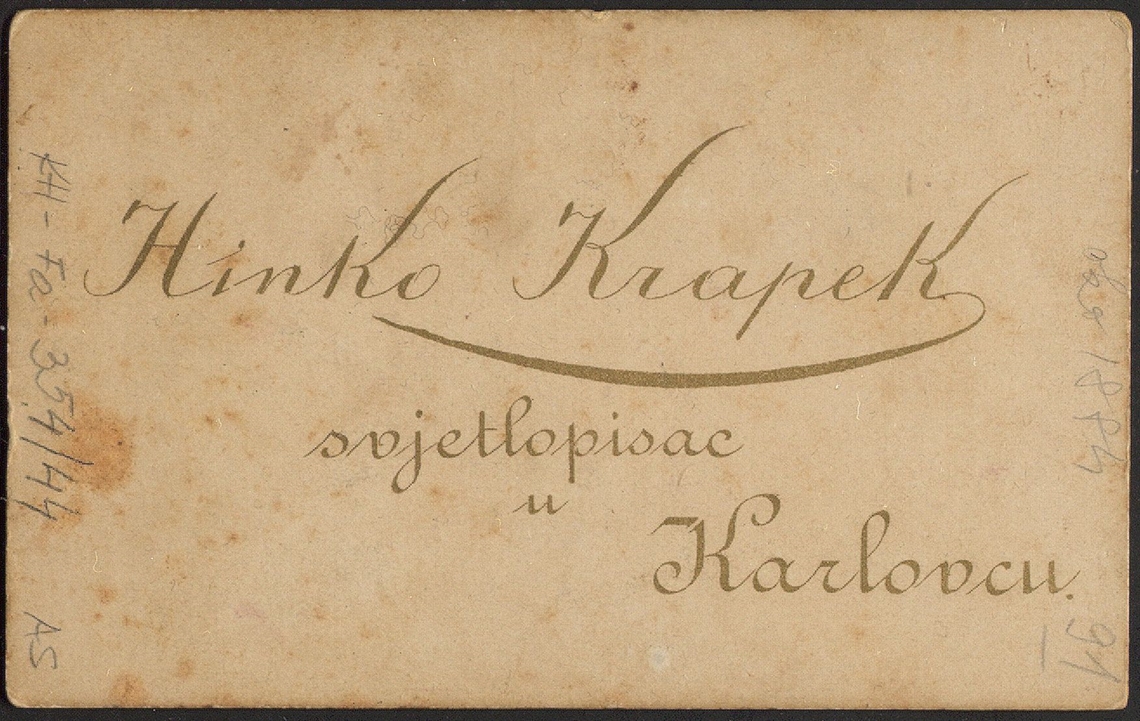 Hinko Krapek
svjetlopisac
u
Karlovcu.
KH-fa-354/44
AS
oko 1884
91